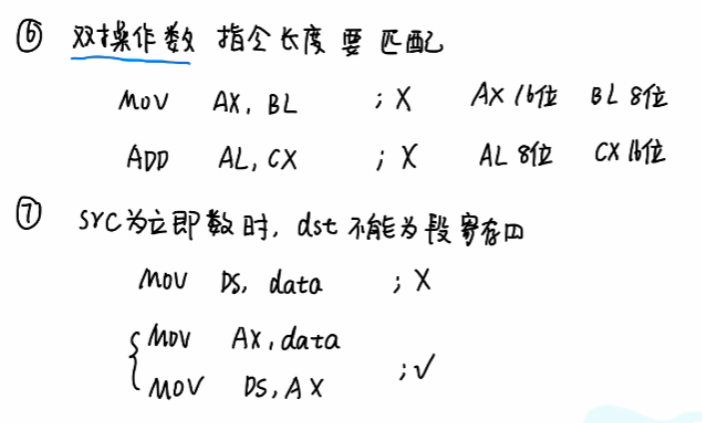 ⑥ 双操作数 指令长度 要 匹配
MOV AX, BL ; X AX 16位 BL 8位
ADD AL, CX ; X AL 8位 CX 16位
⑦ src为立即数时, dst 不能为段寄存四
MOV DS, data ; X
MOV AX, data
MOV DS, AX ; ✓